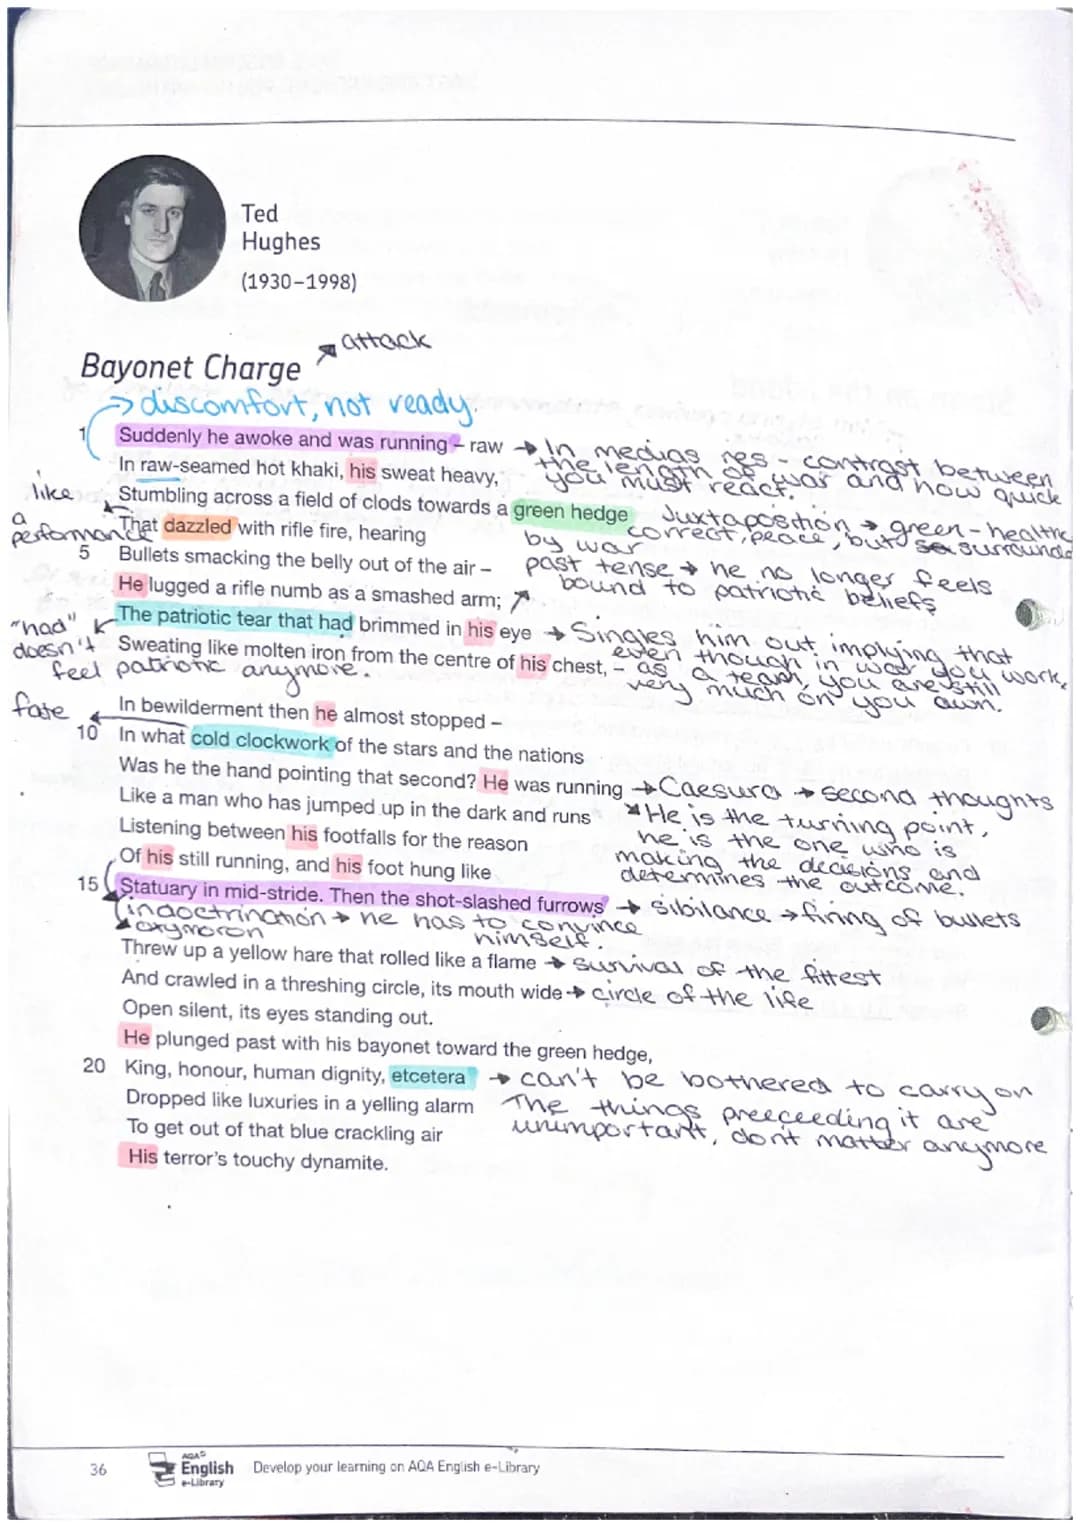 Ted
Hughes
(1930–1998)
attack
Bayonet Charge
→ discomfort, not ready.
1 Suddenly he awoke and was running – raw → In medias res – contrast between
the length of war and how quick
you must react.
In raw-seamed hot khaki, his sweat heavy,
Stumbling across a field of clods towards a green hedge
Juxtaposition → green – health
correct, peace, but surrounded
by war
like
a
performance
That dazzled with rifle fire, hearing
5 Bullets smacking the belly out of the air –
He lugged a rifle numb as a smashed arm;
past tense → he no longer feels
bound to patriotic beliefs
The patriotic tear that had brimmed in his eye → Singles him out implying that
even though in war you work,
as a team, you are still
very much on you own.
"had"
doesn't
feel patriotic anymore.
Sweating like molten iron from the centre of his chest, –
In bewilderment then he almost stopped –
fate
10 In what cold clockwork of the stars and the nations
Was he the hand pointing that second? He was running → Caesura → second thoughts
He is the turning point,
he is the one who is
making the decisions and
determines the outcome.
Like a man who has jumped up in the dark and runs
Listening between his footfalls for the reason
Of his still running, and his foot hung like
15 Statuary in mid-stride. Then the shot-slashed furrows → sibilance → firing of bullets
indoctrination → he has to convince
himself.
oxymoron
Threw up a yellow hare that rolled like a flame → survival of the fittest
And crawled in a threshing circle, its mouth wide → circle of the life
Open silent, its eyes standing out.
He plunged past with his bayonet toward the green hedge,
20 King, honour, human dignity, etcetera → can't be bothered to carry on
The things preeceeding it are
unimportant, don't matter anymore
Dropped like luxuries in a yelling alarm
To get out of that blue crackling air
His terror's touchy dynamite.
36
AQA
English
e-Library
Develop your learning on AQA English e-Library